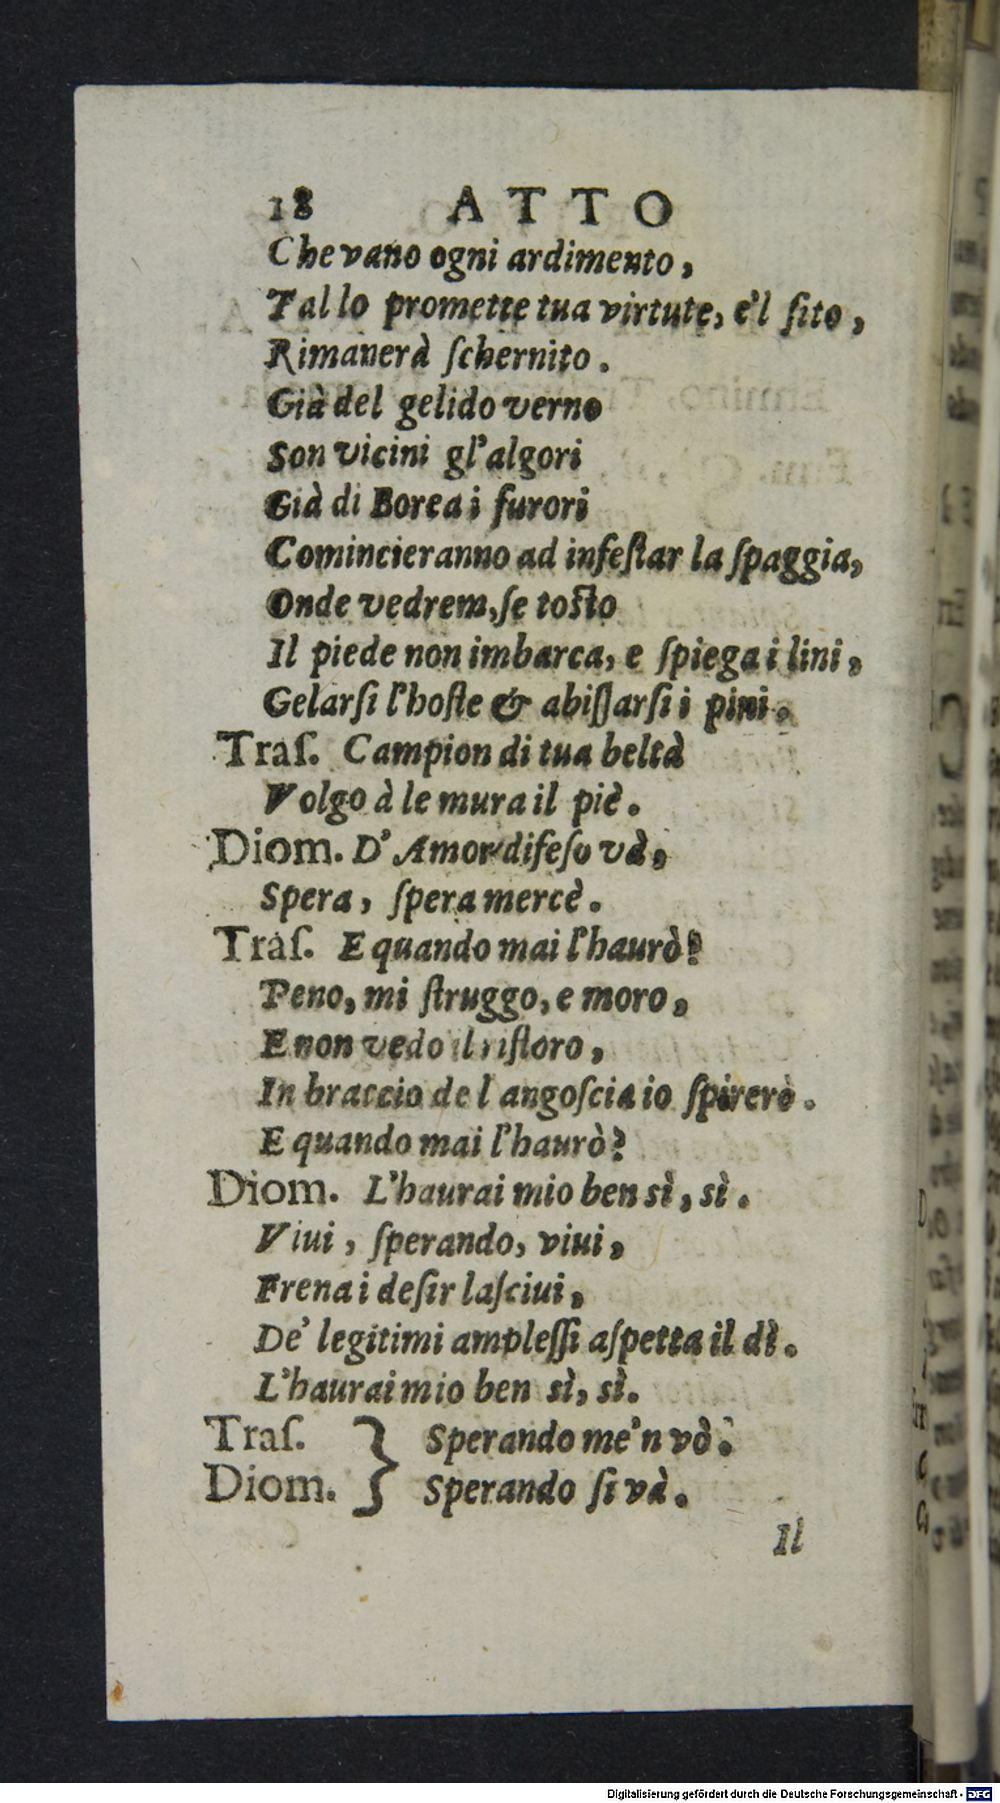 18 ATTO
Che vano ogni ardimento,
Tal lo promette tua virtute, e'l ſito,
Rimanerà ſchernito.
Già del gelido verno
Son vicini gl'algori
Già di Borea i furori
Comincieranno ad infeſtar la ſpaggia,
Onde vedrem, ſe toſto
Il piede non imbarca, e ſpiega i lini,
Gelarſi l'hoſte & abiſſarſi i pini.
Traſ. Campion di tua beltà
Volgo à le mura il piè.
Diom. D'Amor difeſo và,
Spera, ſpera mercè.
Traſ. E quando mai l'haurò?
Peno, mi ſtruggo, e moro,
E non vedo il riſtoro,
In braccio de l angoſcia io ſpirerò.
E quando mai l'haurò?
Diom. L'haurai mio ben sì, sì.
Viui, ſperando, viui,
Frena i deſir laſciui,
De' legitimi ampleſſi aſpetta il dì.
L'haurai mio ben sì, sì.
Traſ. } Sperando me'n vò.
Diom. } Sperando ſi và.
Il
Digitalisierung gefördert durch die Deutsche Forschungsgemeinschaft - DFG